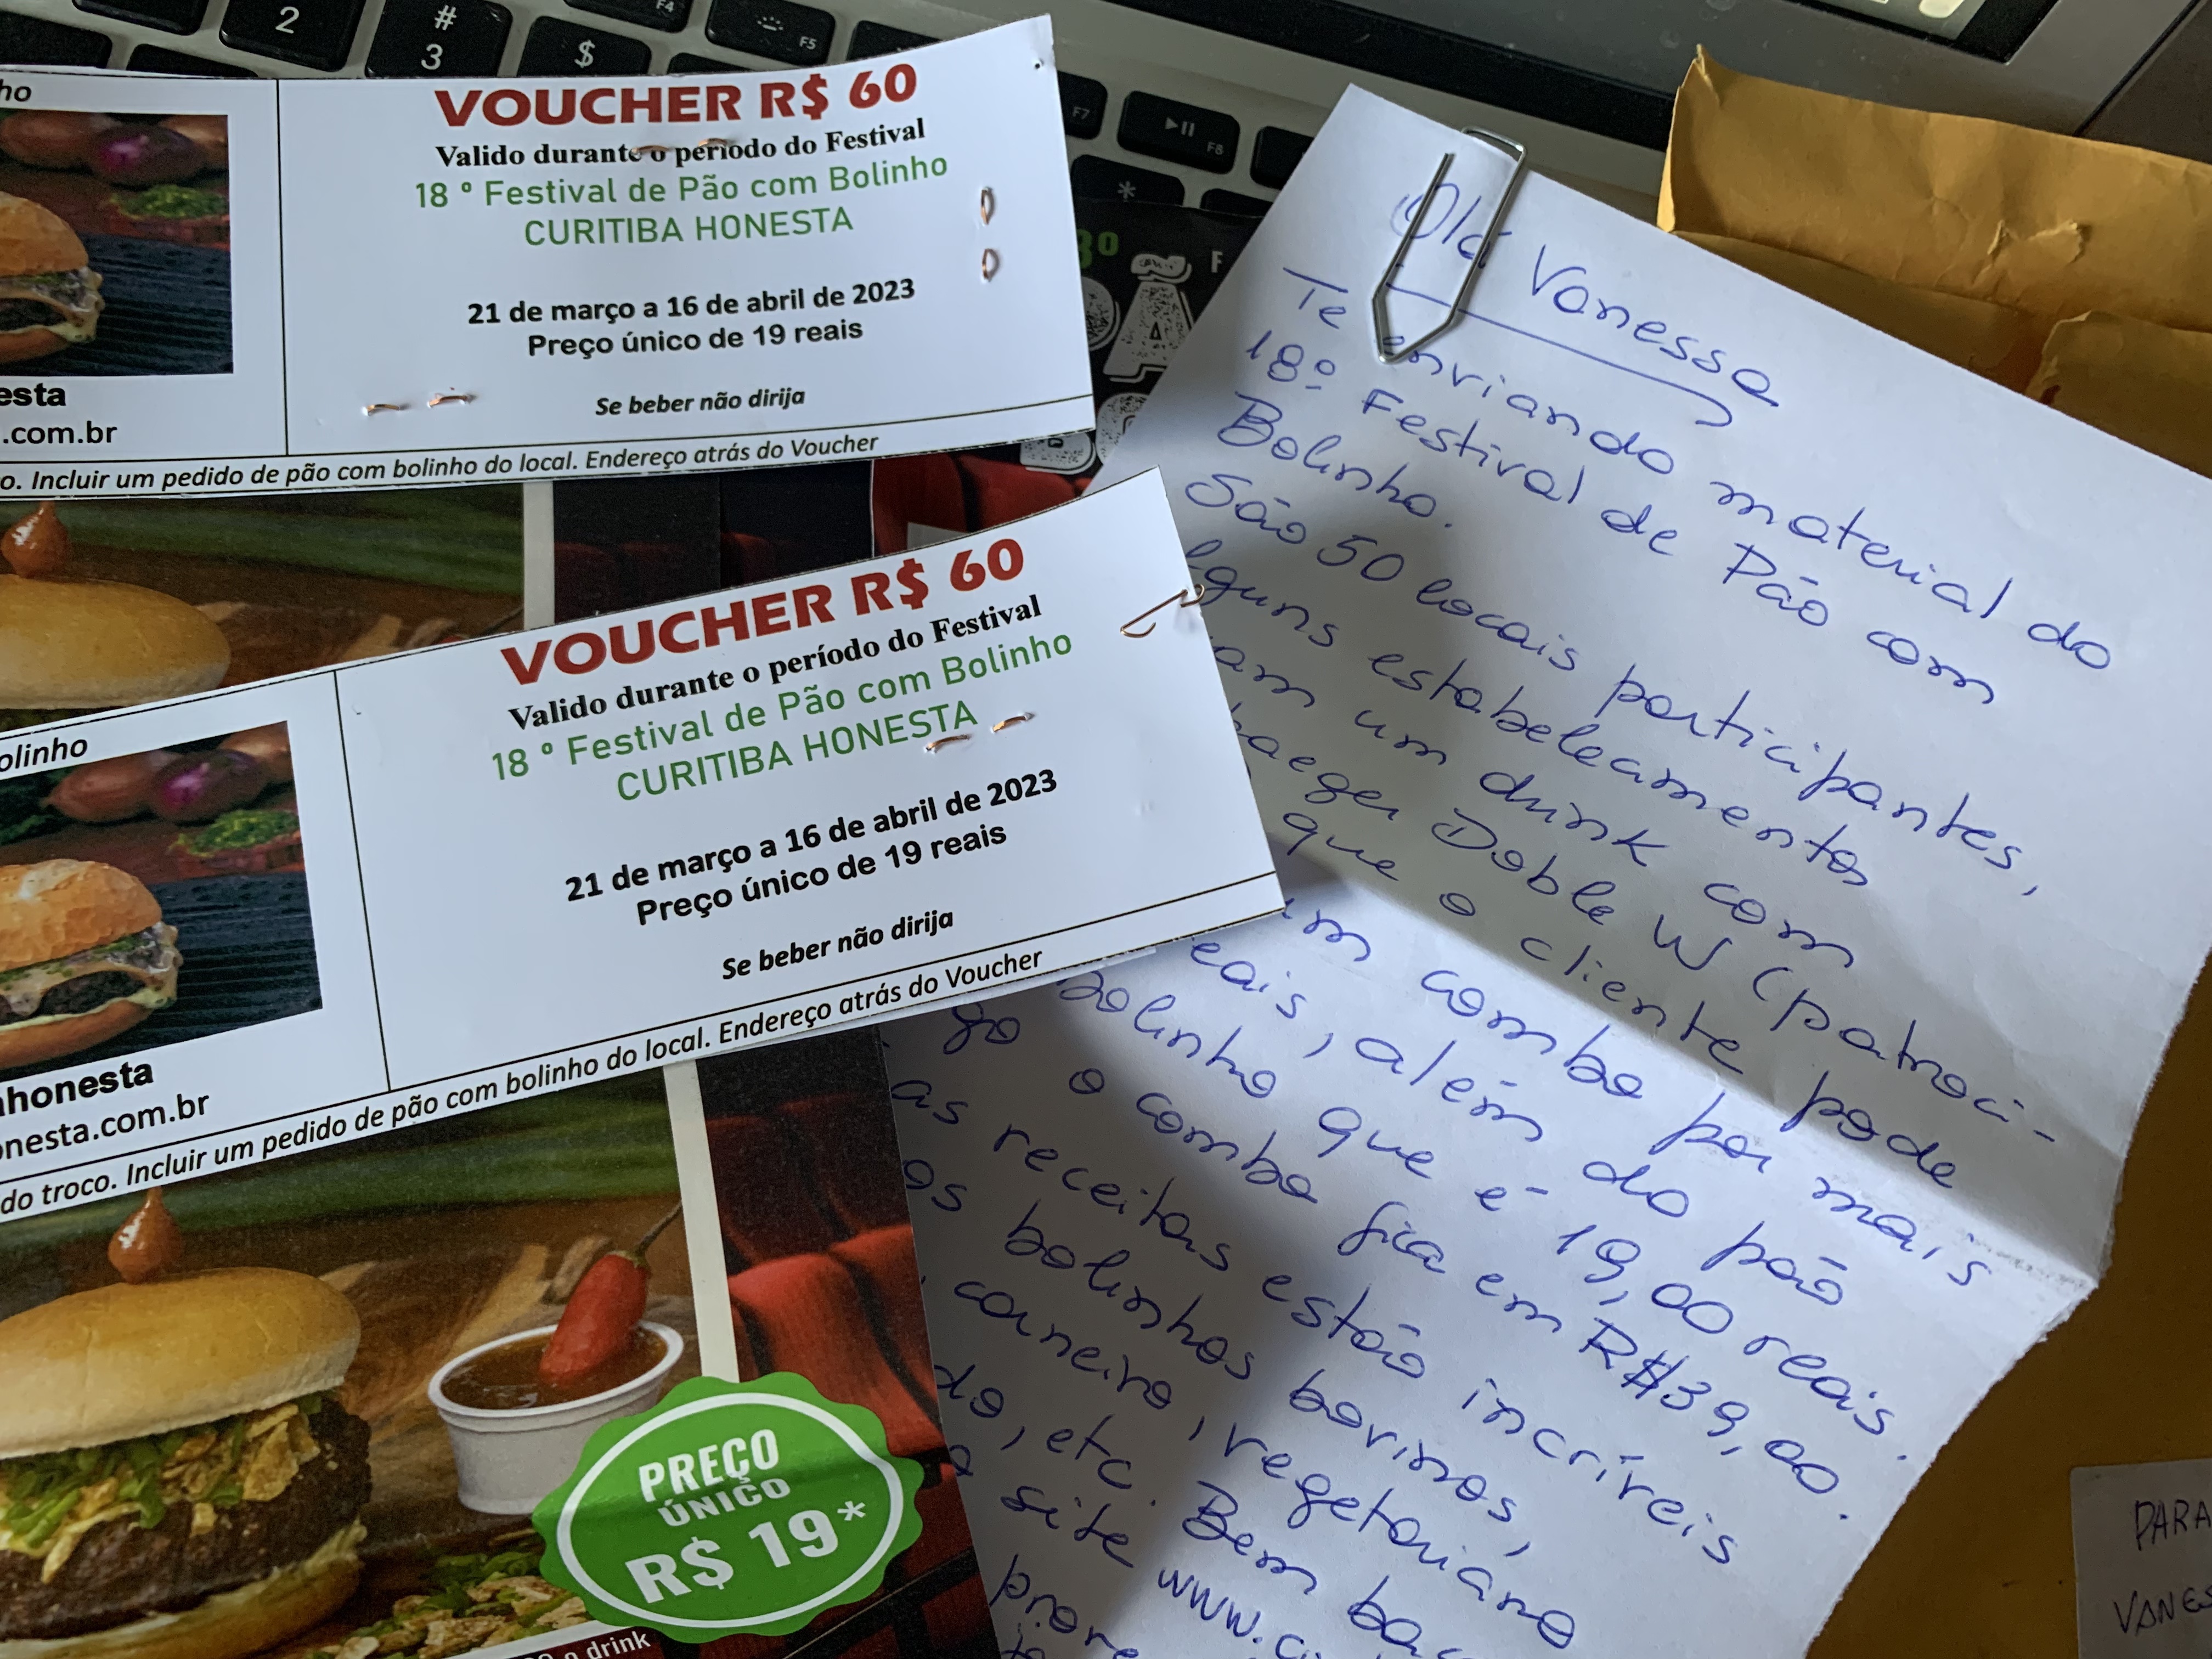 2
#
3
$
F4
F5
F7
F8
*
ho
esta
.com.br
VOUCHER R$ 60
Valido durante o período do Festival
18 º Festival de Pão com Bolinho
CURITIBA HONESTA
21 de março a 16 de abril de 2023
Preço único de 19 reais
Se beber não dirija
o. Incluir um pedido de pão com bolinho do local. Endereço atrás do Voucher
olinho
honesta
onesta.com.br
VOUCHER R$ 60
Valido durante o período do Festival
18 º Festival de Pão com Bolinho
CURITIBA HONESTA
21 de março a 16 de abril de 2023
Preço único de 19 reais
Se beber não dirija
do troco. Incluir um pedido de pão com bolinho do local. Endereço atrás do Voucher
PREÇO
ÚNICO
R$ 19*
o drink
Olá Vanessa
Te enviando material do
18º Festival de Pão com
Bolinho.
São 50 locais participantes,
lguns estabelecimentos
am um drink com
haeger Doble W (patroci-
que o cliente pode
um combo por mais
eais, além do pão
bolinho que é 19,00 reais.
go o combo fica em R$39,00.
as receitas estão incríveis
os bolinhos bovinos,
carneiro, vegetariano
do, etc. Bem ba
a site www.c
PARA
VANES